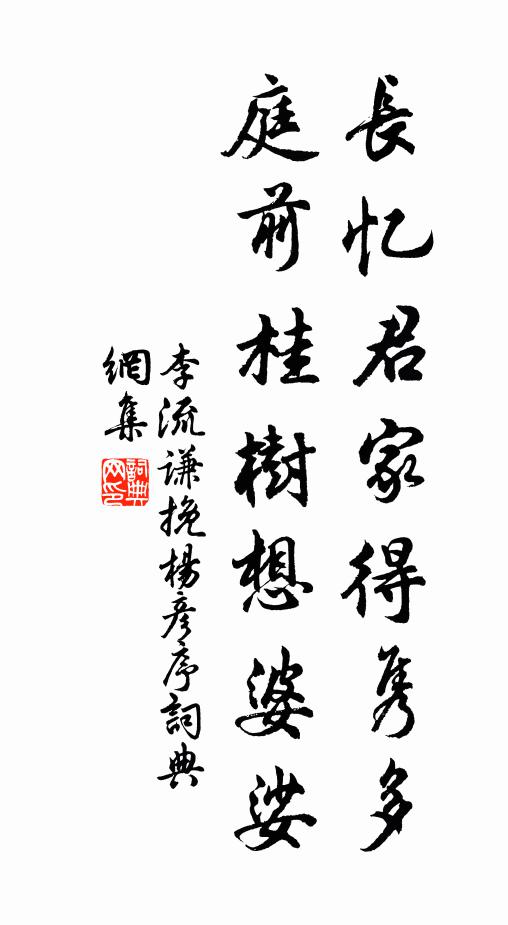 長忆君家得隽多
庭前桂樹想婆娑
李流谦挽楊彦序詞典
網集
詞典网印